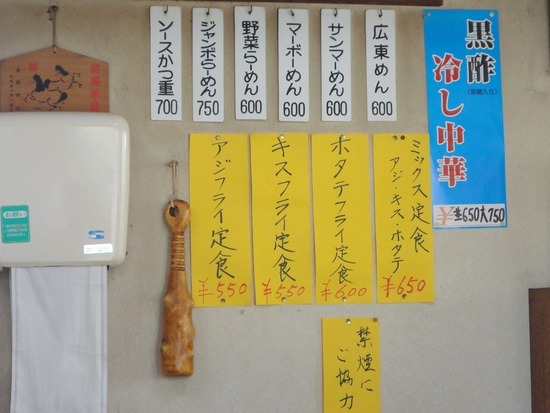 広東めん 600
サンマーめん 600
マーボーめん 600
野菜らーめん 600
ジャンボらーめん 750
ソースかつ重 700
黒酢
(黒糖入り)
冷し中華
¥生650大750
ミックス定食
アジ・キス・ホタテ
¥650
ホタテフライ定食
¥600
キスフライ定食
¥550
アジフライ定食
¥550
禁煙に
ご協力
お願い